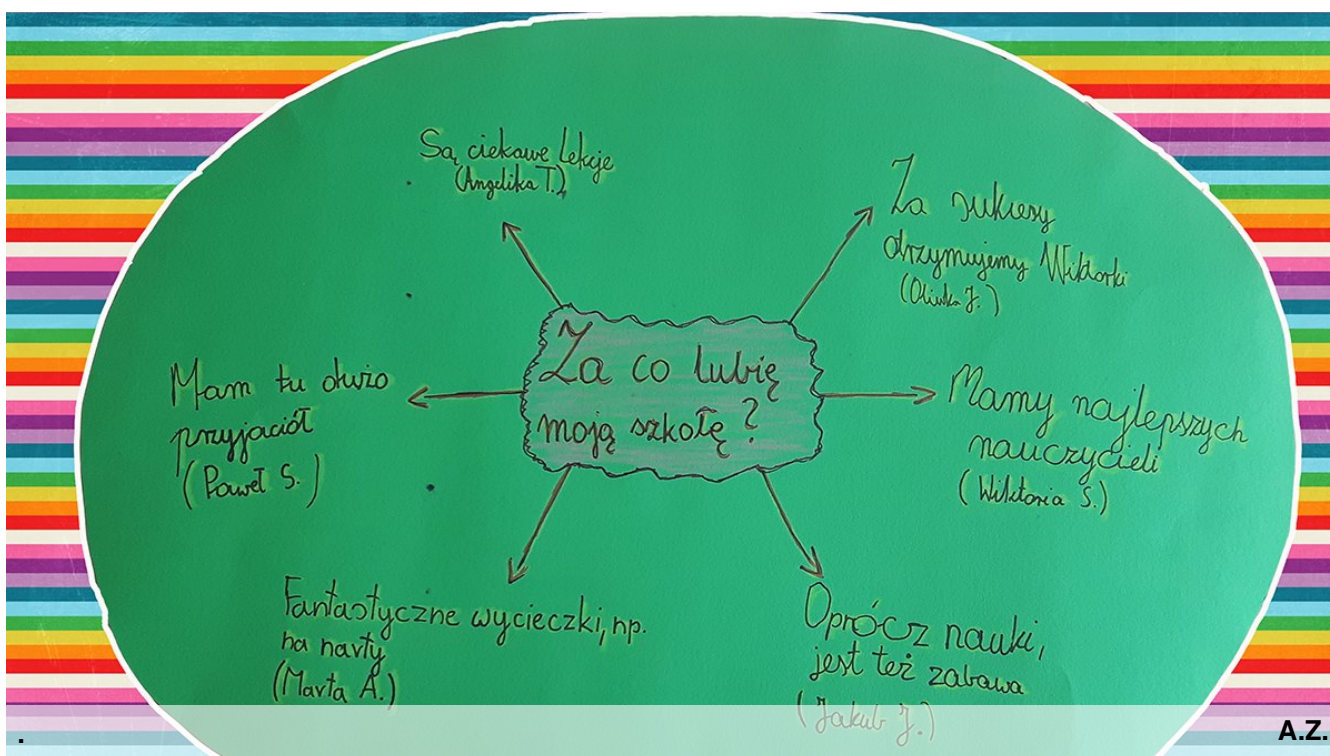 Są ciekawe lekcje
(Angelika T.)
Za sukcesy
otrzymujemy Wiktorki
(Oliwka J.)
Za co lubię
moją szkołę?
Mam tu dużo
przyjaciół
(Paweł S.)
Mamy najlepszych
nauczycieli
(Wiktoria S.)
Fantastyczne wycieczki, np.
na narty
(Marta A.)
Oprócz nauki,
jest też zabawa
(Jakub J.)
.
A.Z.